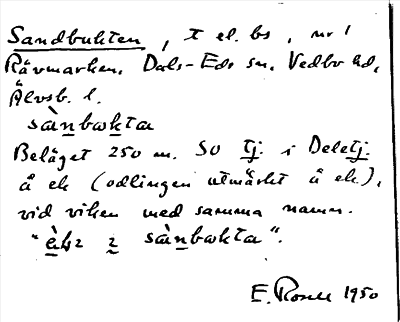 Sandbukten, t el. bs, nr 1
Rävmarken, Dals-Eds sn, Vedbo hd,
Älvsb. l.
sànbωkta
Beläget 250 m. SO tj. i Deletj.
å ek (odlingen utmärkt å ek.),
vid viken med samma namn.
sànbωkta".
E. Rosell 1950